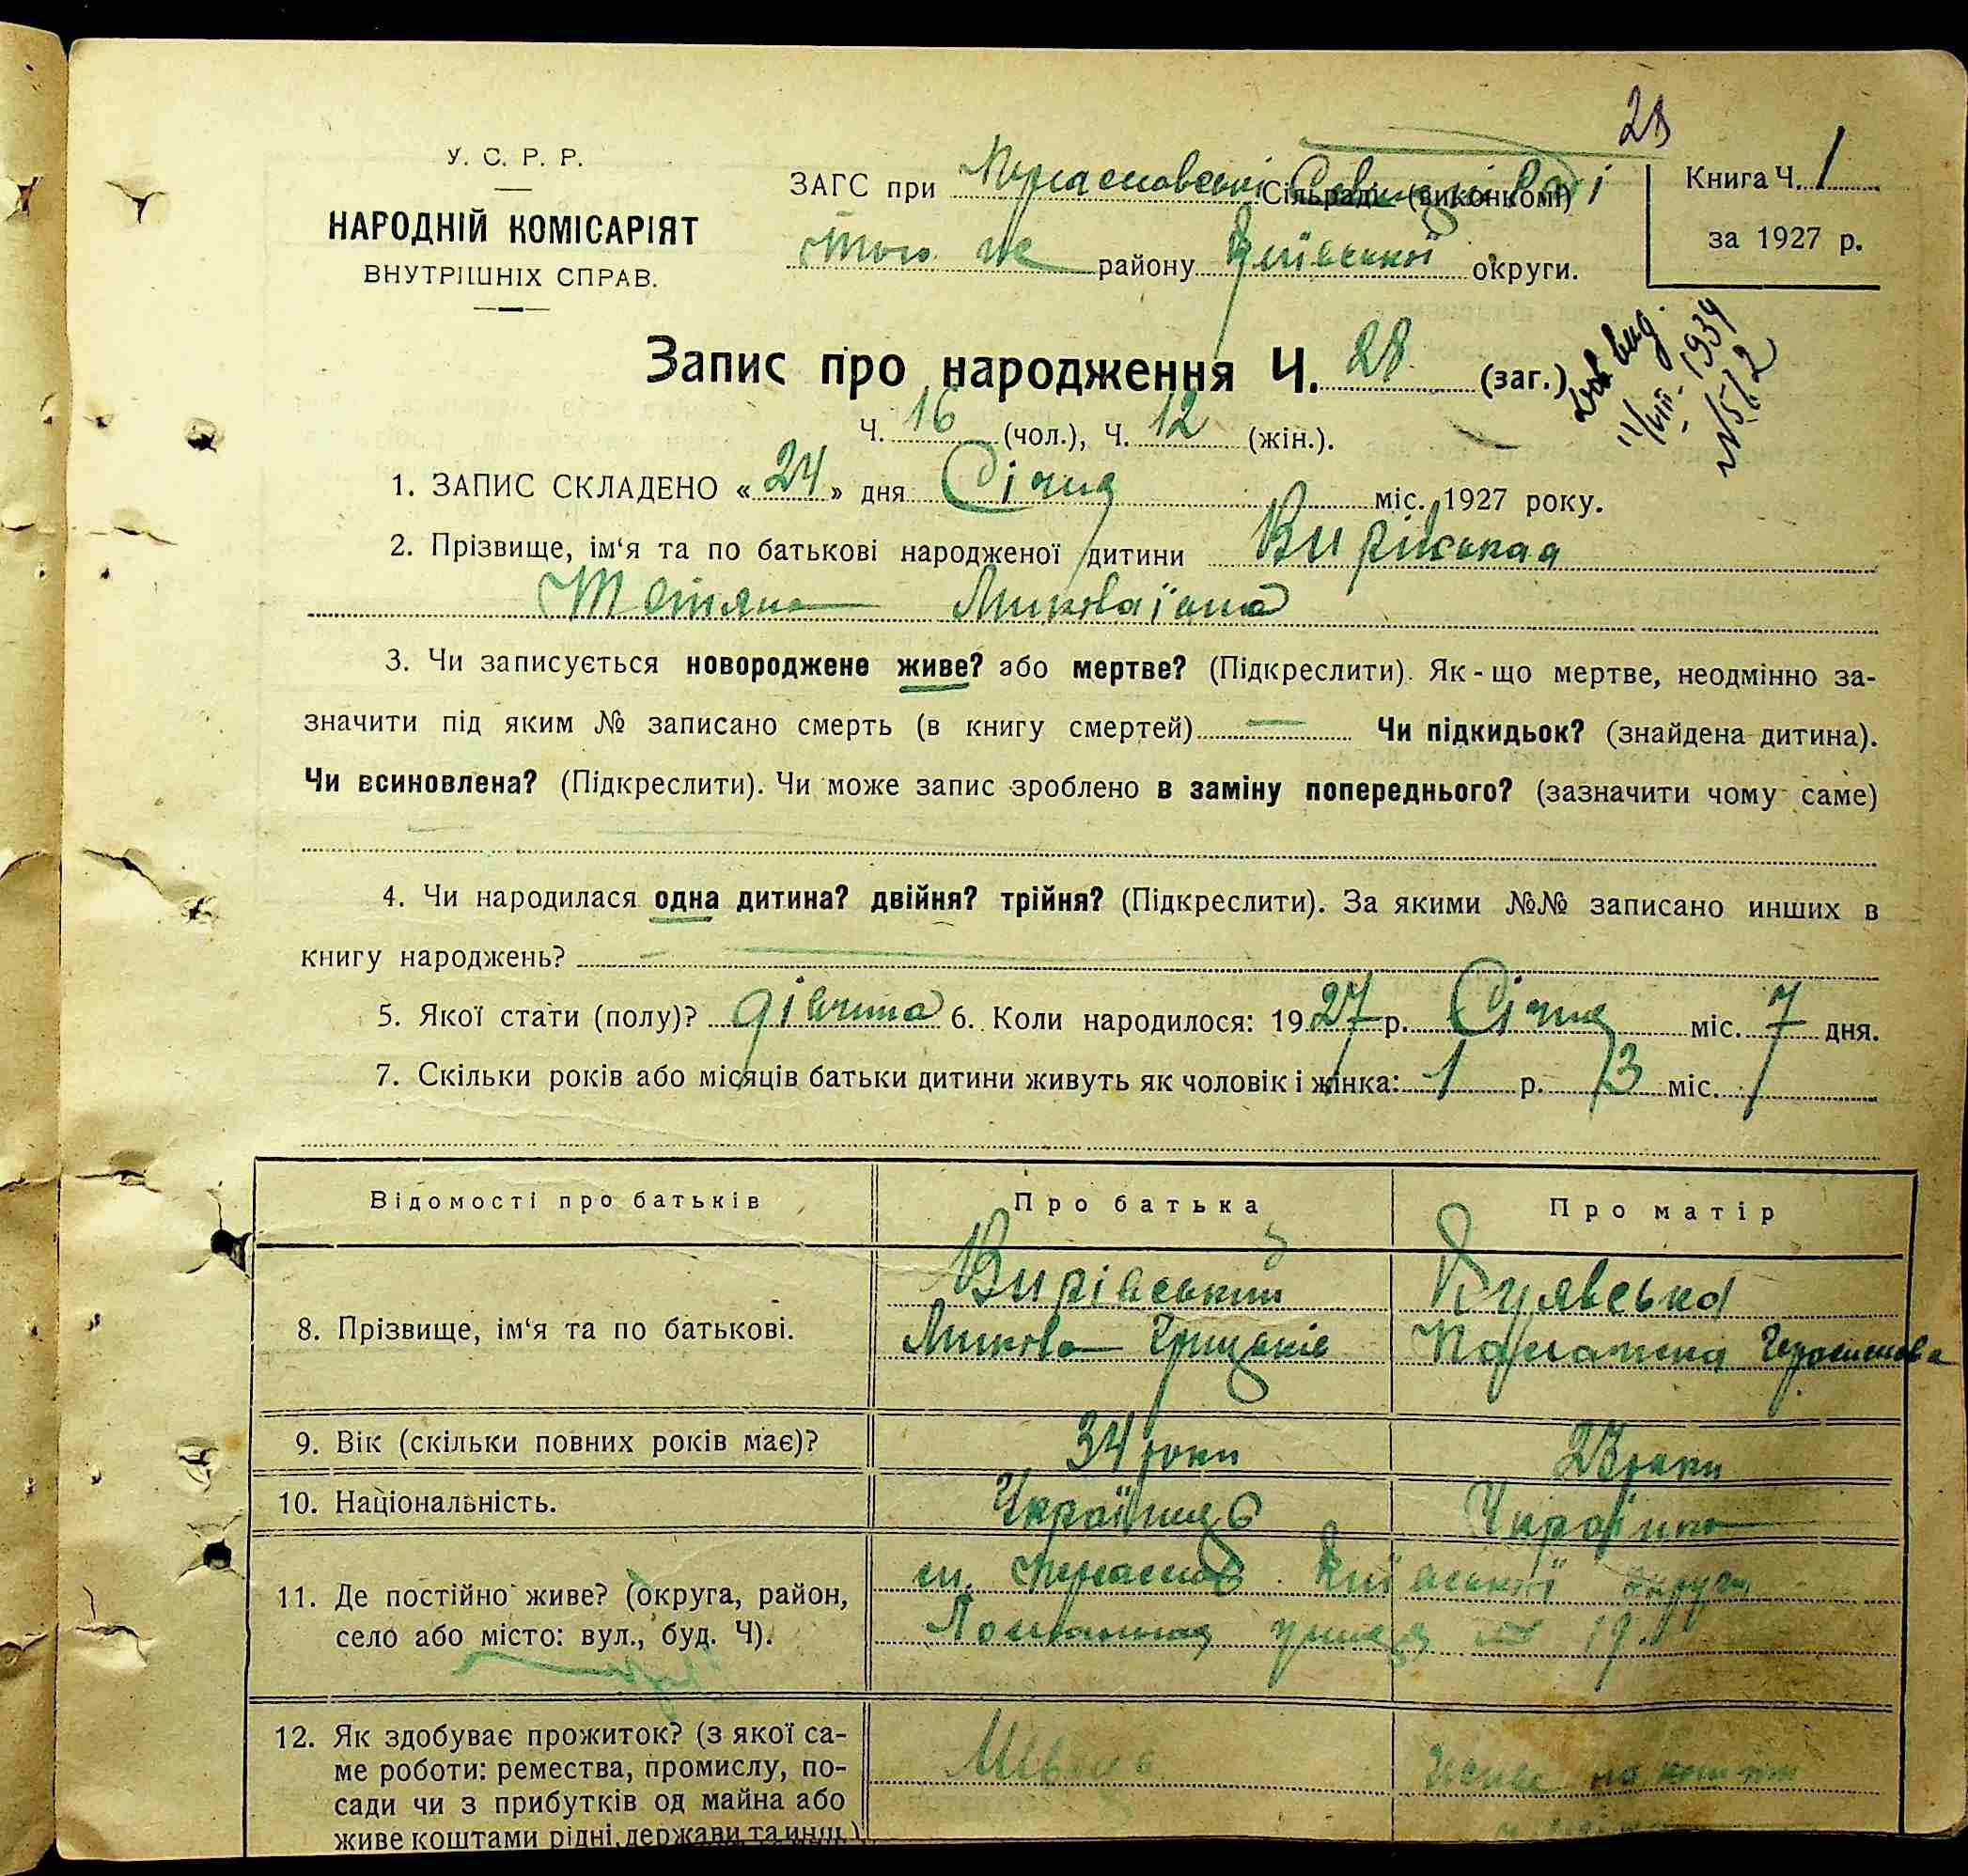 28
У. С. Р. Р.
НАРОДНІЙ КОМІСАРІЯТ
ВНУТРІШНІХ СПРАВ.
ЗАГС при Сільраді (виконкомі)
того же району Київської округи.
Книга Ч. 1
за 1927 р.
Запис про народження Ч. 28 (заг.)
11/VIII-1934
№ 512
Ч. 16 (чол.), Ч. 12 (жін.).
1. ЗАПИС СКЛАДЕНО « 24 » дня Січня міс. 1927 року.
2. Прізвище, ім‘я та по батькові народженої дитини Вирівськая
Тетяна Миколаївна
3. Чи записується новороджене живе? або мертве? (Підкреслити). Як - що мертве, неодмінно за-
значити під яким № записано смерть (в книгу смертей) Чи підкидьок? (знайдена дитина).
Чи всиновлена? (Підкреслити). Чи може запис зроблено в заміну попереднього? (зазначити чому саме)
4. Чи народилася одна дитина? двійня? трійня? (Підкреслити). За якими №№ записано инших в
книгу народжень?
5. Якої стати (полу)? дівчина 6. Коли народилося: 1927 р. Січня міс. 7 дня.
7. Скільки років або місяців батьки дитини живуть як чоловік і жінка: 1 р. 3 міс.
Відомості про батьків Про батька Про матір
8. Прізвище, ім‘я та по батькові.
Вирівський Куявська
Микола Грицьків Палажка Герасимова
9. Вік (скільки повних років має)? 34 роки 23 роки
10. Національність. Українець Українка
11. Де постійно живе? (округа, район,
село або місто: вул., буд. Ч).
м. Київської округи
19
12. Як здобуває прожиток? (з якої са-
ме роботи: ремества, промислу, по-
сади чи з прибутків од майна або
живе коштами рідні, держави та инш.)
Швець живе на кошти